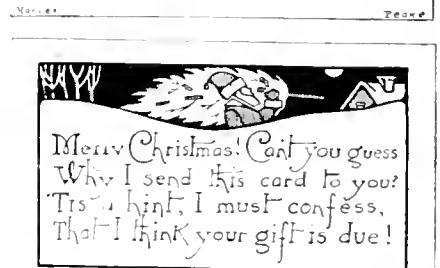 Peake
Merry Christmas! Can't you guess
Why I send this card to you?
'Tis a hint, I must confess,
That I think your gift is due!